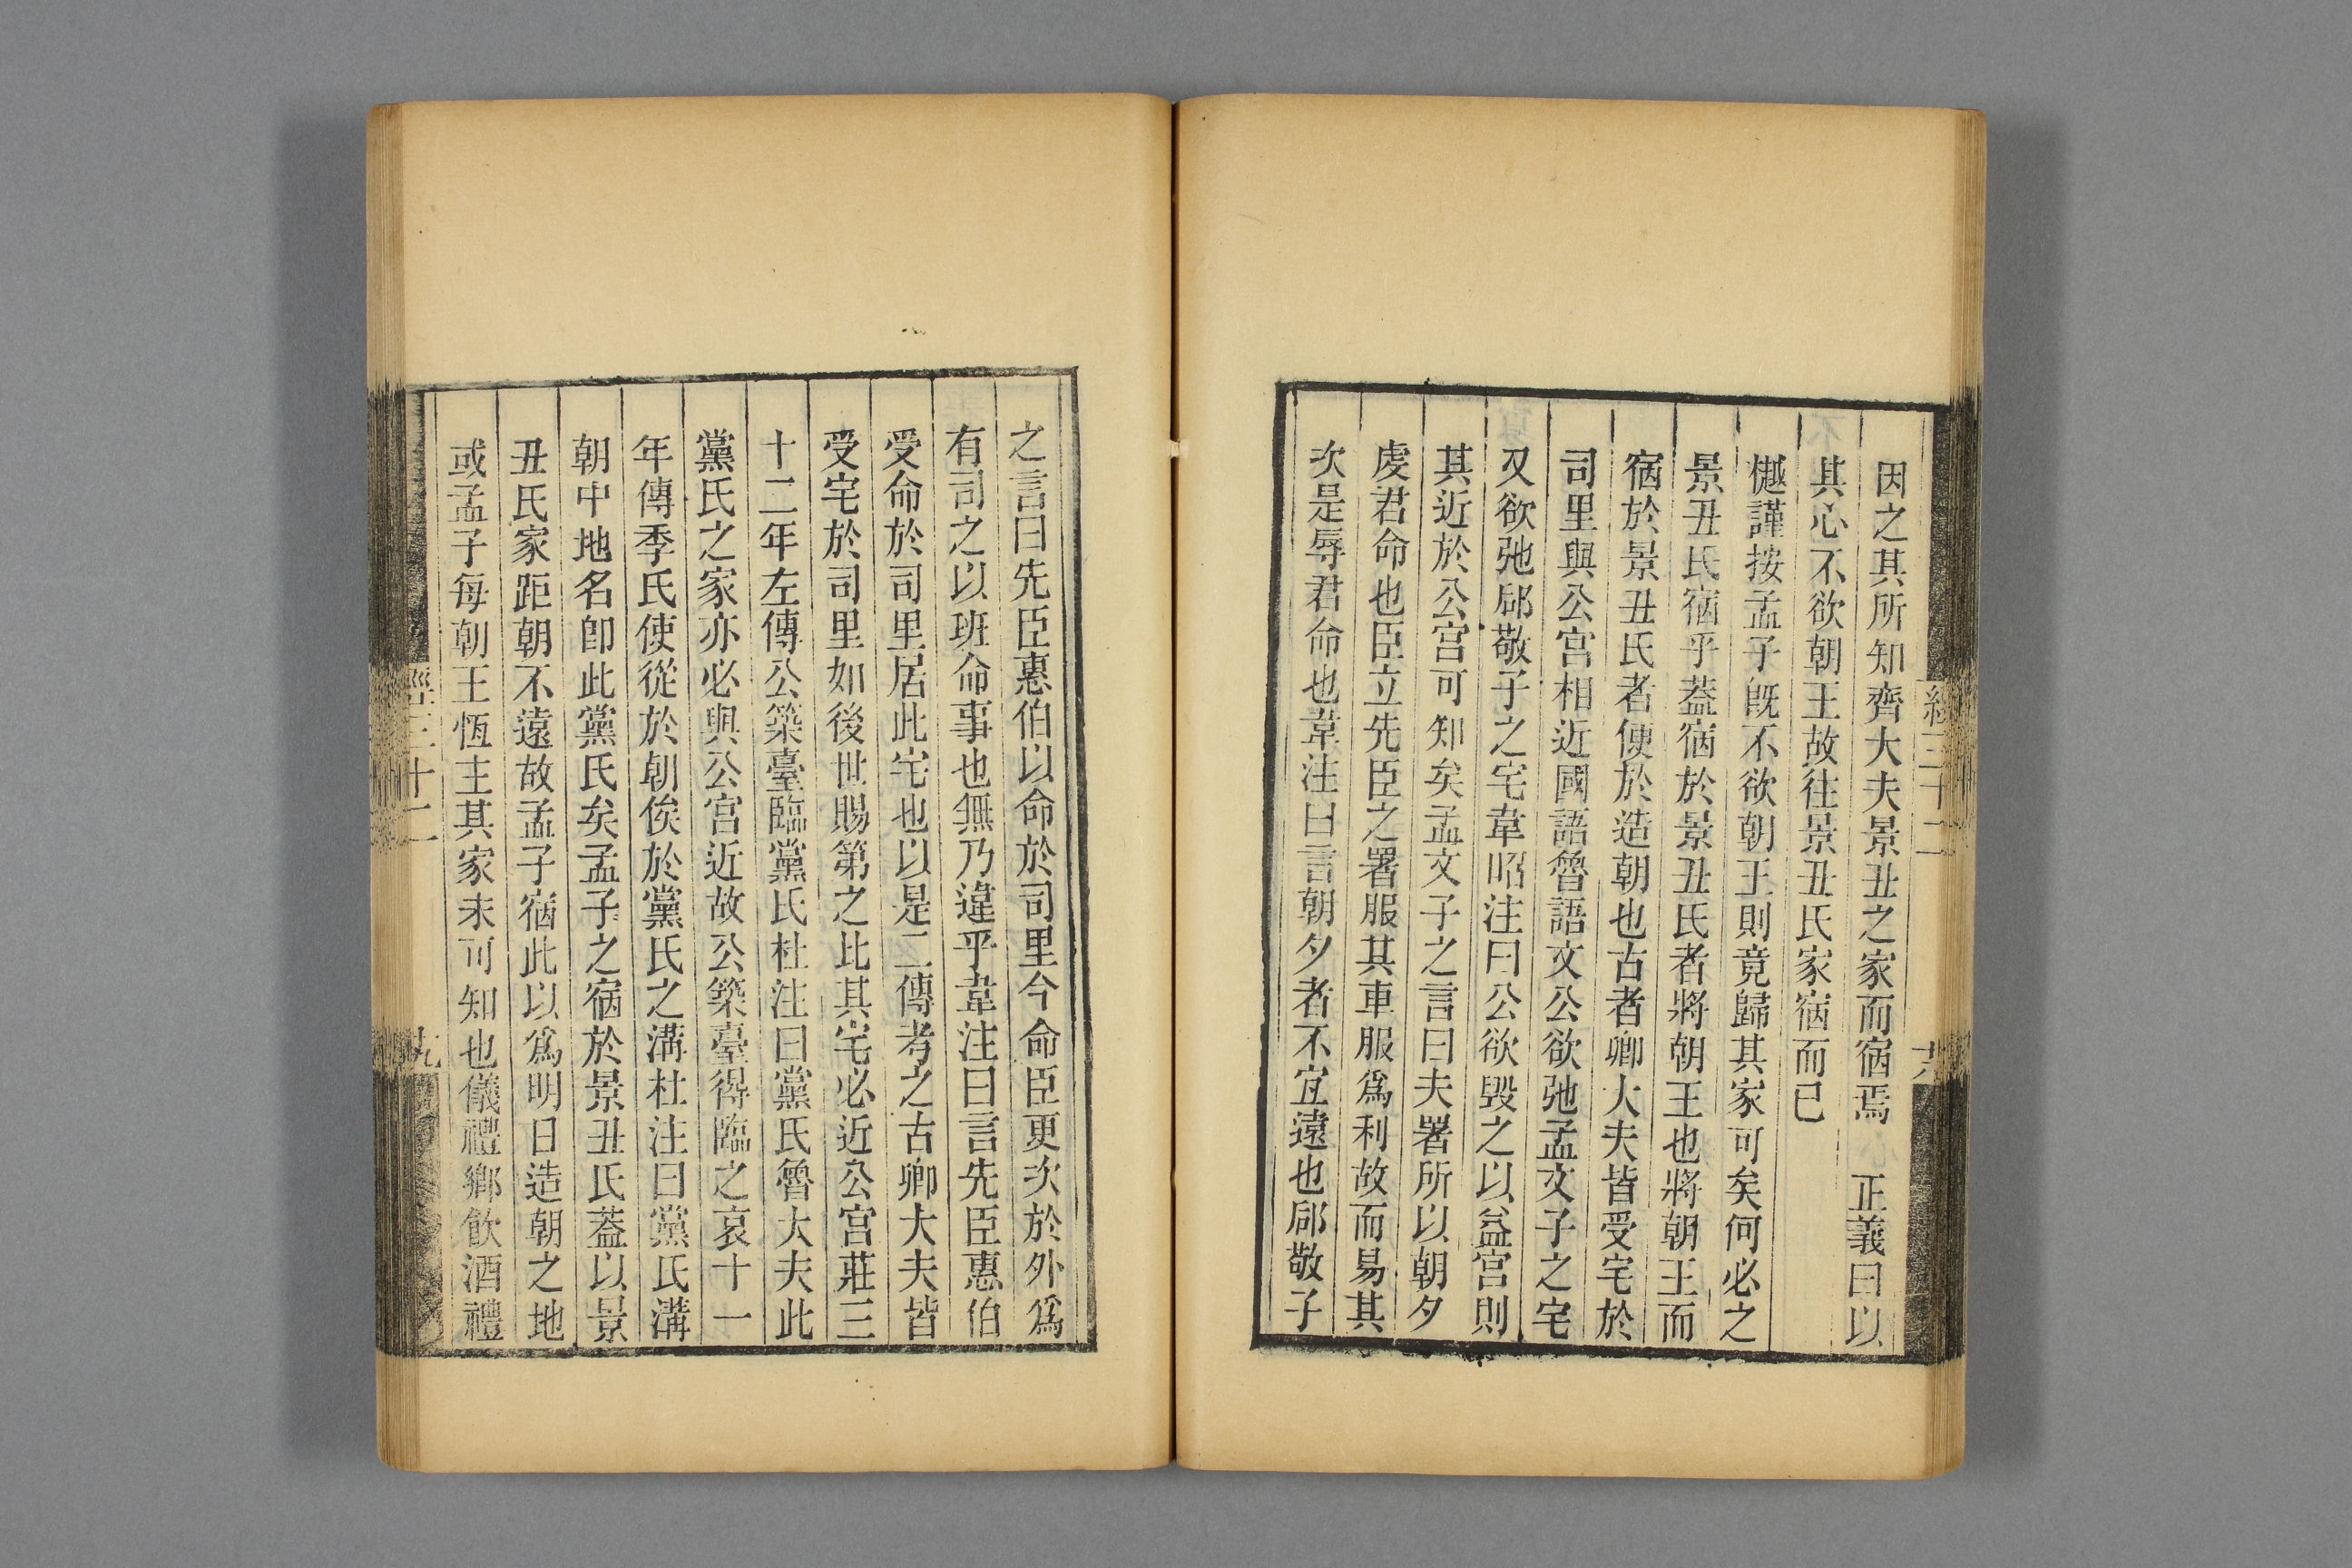 因之其所知齊大夫景丑之家而宿焉　正義曰以
其心不欲朝王故往景丑氏家宿而已
樾謹按孟子旣不欲朝王則竟歸其家可矣何必之
景丑氏宿乎蓋宿於景丑氏者將朝王也將朝王而
宿於景丑氏者便於造朝也古者卿大夫皆受宅於
司里與公宫相近國語魯語文公欲弛孟文子之宅
又欲弛郈敬子之宅韋昭注曰公欲毀之以益宫則
其近於公宫可知矣孟文子之言曰夫署所以朝夕
虔君命也臣立先臣之署服其車服爲利故而易其
次是辱君命也韋注曰言朝夕者不宜遠也郈敬子
經三十二
之言曰先臣惠伯以命於司里今命臣更次於外爲
有司之以班命事也無乃違乎韋注曰言先臣惠伯
受命於司里居此宅也以是二傳考之古卿大夫皆
受宅於司里如後世賜第之比其宅必近公宫莊三
十二年左傳公築臺臨黨氏杜注曰黨氏魯大夫此
黨氏之家亦必與公宫近故公築臺得臨之哀十一
年傳季氏使從於朝俟於黨氏之溝杜注曰黨氏溝
朝中地名卽此黨氏矣孟子之宿於景丑氏蓋以景
丑氏家距朝不遠故孟子宿此以爲明日造朝之地
或孟子每朝王恆主其家未可知也儀禮鄉飮酒禮
經三十二
九